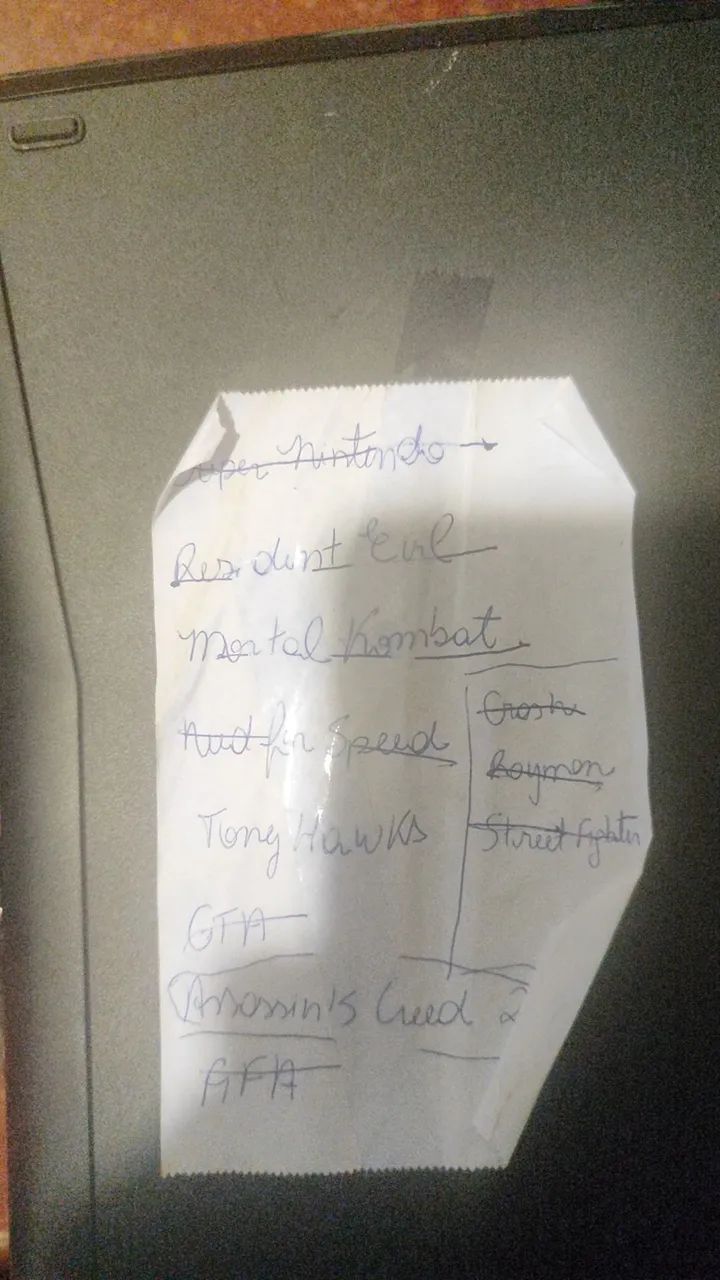 Super Nintendo
Resident Evil
Mortal Kombat
Need for Speed
Tony Hawks
GTA
Crash
Rayman
Street Fighter
Assassin's Creed 2
GTA